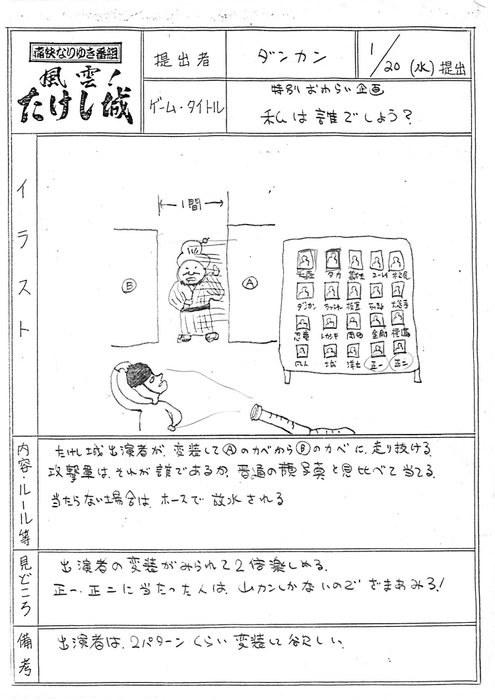 痛快なりゆき番組
風雲!
たけし城
提出者
ダンカン
1/20 (水) 提出
ゲーム・タイトル
特別おわらい企画
私は誰でしょう?
イラスト
1間
Ⓑ
Ⓐ
タカ
ダンカン
城
洋七
正一
正二
内容・ルール等
たけし城出演者が、変装してⒶのカベからⒷのカベに、走り抜ける。
攻撃軍は、それが誰であるか、普通の顔写真と見比べて当てる。
当たらない場合は、ホースで放水される
見どころ
出演者の変装がみられて2倍楽しめる。
正一・正二に当たった人は、山カンしかないので ざまあみろ!
備考
出演者は、2パターンくらい変装して欲しい。